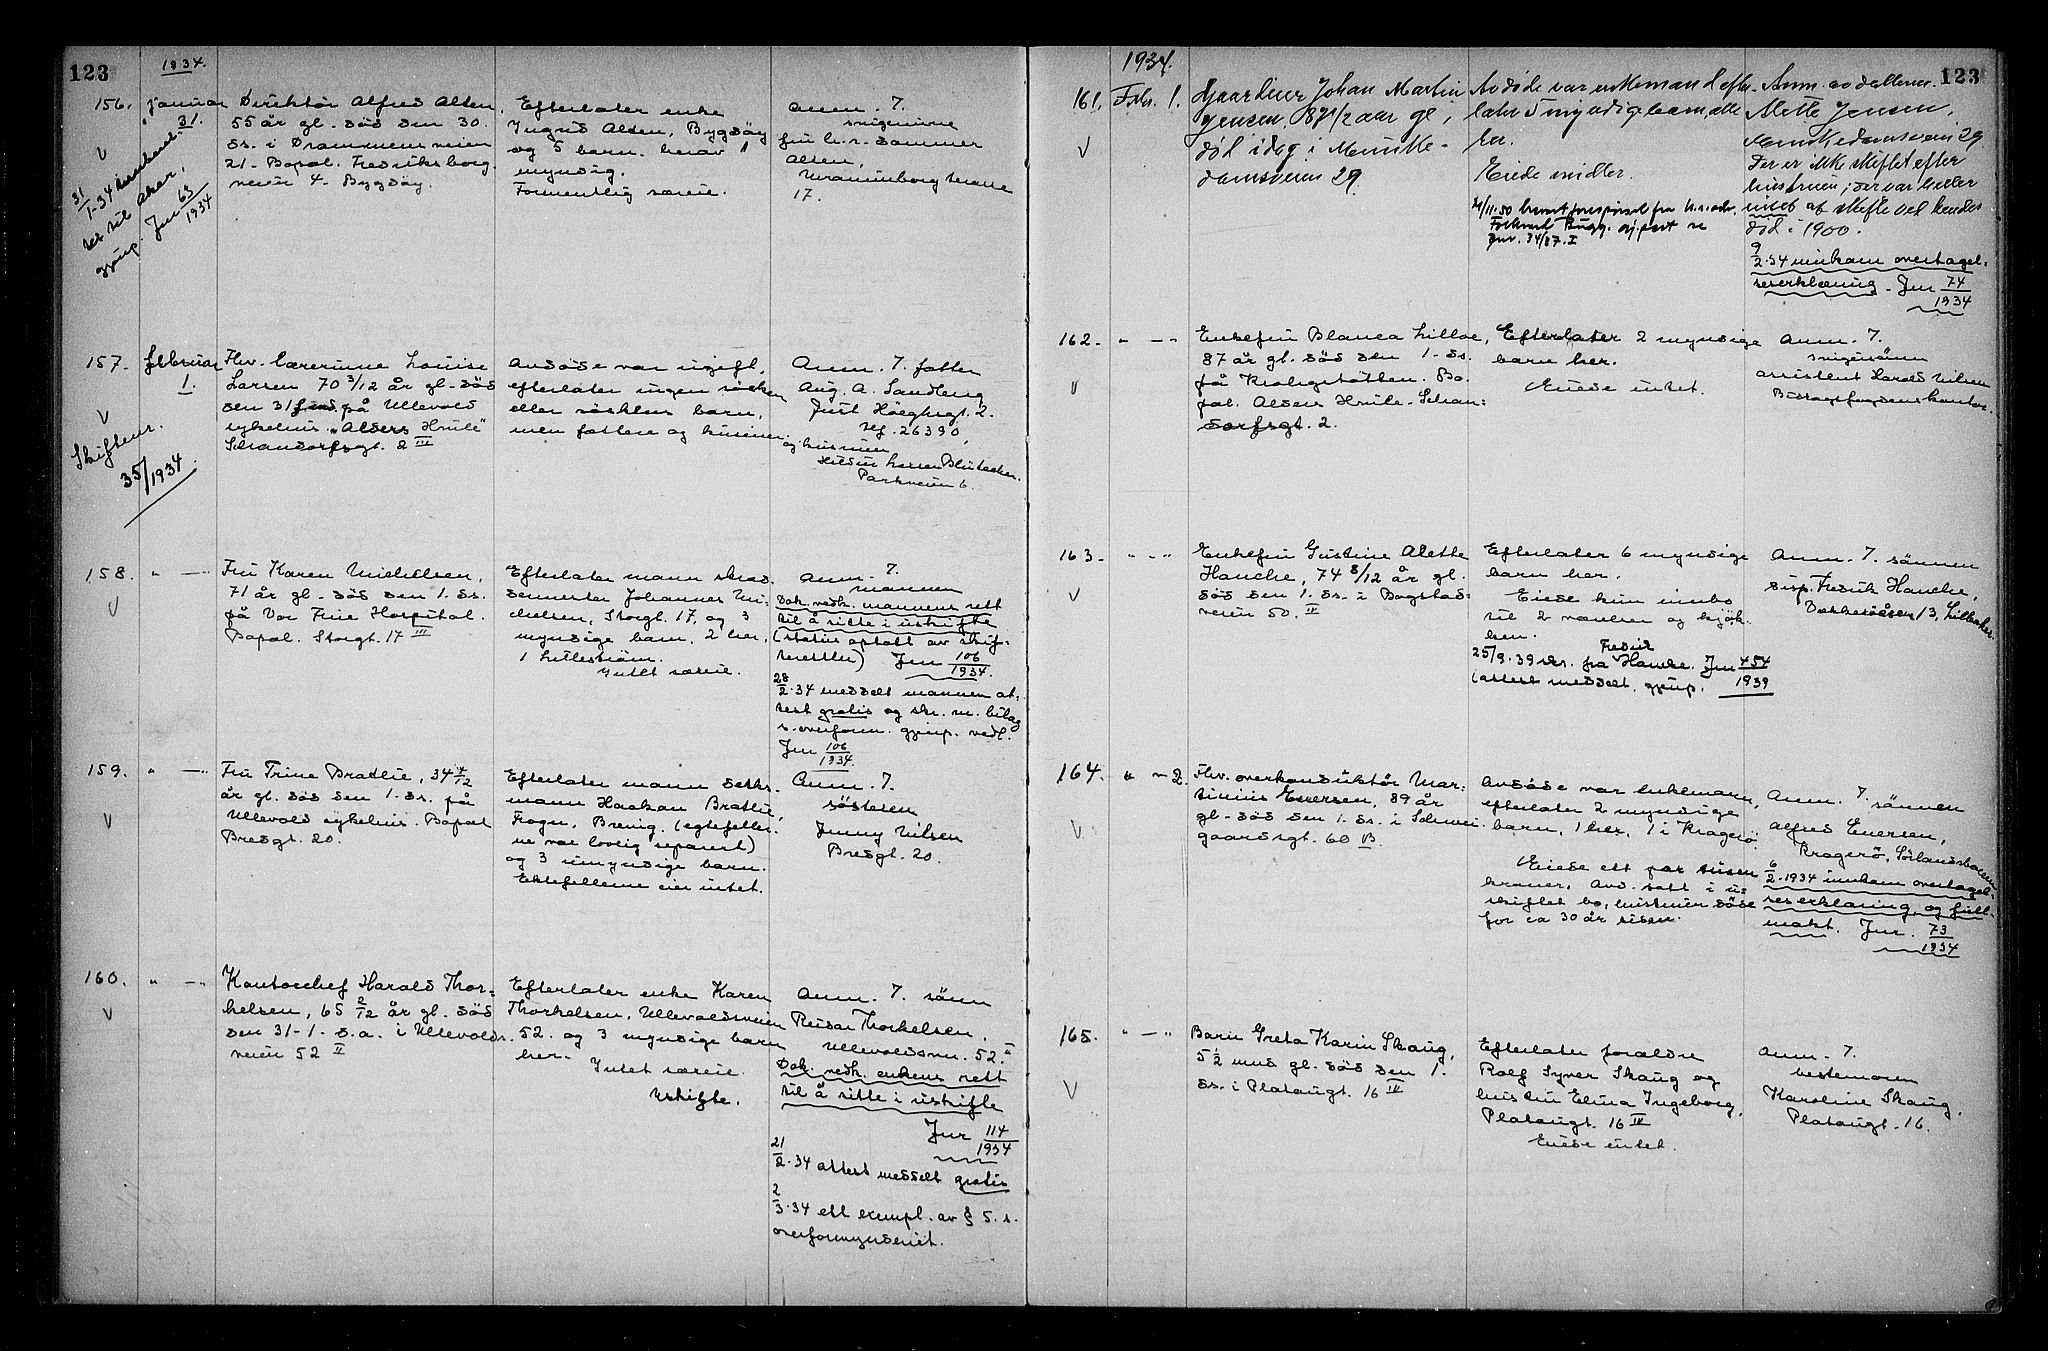 123
1934.
156.
Januar
31.
Direktör Alfred Alsen
55 år gl. död den 30.
ds. i Drammensveien
21. Bopæl. Fredriksborg-
veien 4. Bygdöy.
Efterlater enke
Ingrid Alsen, Bygdöy
og 5 barn, herav 1
myndig.
Formentlig særeie.
Anm. 7.
svigerinne
fru h.r. dommer
Alsen,
Uranienborg terasse
17.
31/1-34
til Aker,
gjenp. Jnr 63/1934
157.
februar
1.
Fhv. lærerinne Louise
Larsen 70 3/12 år gl. död
den 31 på Ullevold
sykehus. "Alders Hvile"
Schandorfsgt. 2 III
Avdöde var ugift,
efterlater ingen söсken
eller söskens barn,
men fettere og kusiner
Anm. 7. fetter
Aug. A. Sandberg
Just Höeghsgt. 2.
tlf. 26390,
og kusinen
Larsen
Parkveien 6.
Skiftenr.
35/1934
158.
" — "
Fru Karen Michelsen,
71 år gl. död den 1. ds.
på Vor Frue Hospital.
Bopæl. Storgt. 17 III
Efterlater mann skred-
dermester Johannes Mi-
chelsen, Storgt. 17, og 3
myndige barn, 2 her,
1 Lilleström.
Intet særeie.
Anm. 7.
mannen
Dok. vedk. mannens rett
til å sitte i uskifte
(status optatt av skif-
teretten) Jnr 106/1934.
28/2.34 meddelt mannen at-
test gratis og skr. m. bilag
t. overform. gjenp. vedl.
Jnr 106/1934.
159.
" — "
Fru Trine Bratlie, 34 4/12
år gl. död den 1. ds. på
Ullevold sykehus. Bopæl
Bredgt. 20.
Efterlater mann dekks-
mann Haakon Bratlie,
Frogn, Brevig. (egtefeller-
ne var lovlig separert)
og 3 umyndige barn.
Ektefellerne eier intet.
Anm. 7.
sösteren
Jenny Nilsen
Bredgt. 20.
160.
" — "
Kontorchef Harald Thor-
kelsen, 65 2/12 år gl. död
den 31-1. d.a. i Ullevolds-
veien 52 II
Efterlater enke Karen
Thorkelsen, Ullevoldsveien
52. og 3 myndige barn
her.
Intet særeie.
Uskifte.
Anm. 7. sönn
Reidar Thorkelsen,
Ullevoldsvn. 52. II
Dok. vedk. enkens rett
til å sitte i uskifte
Jnr 114/1934
21/2.34 attest meddelt gratis
2/3.34 ett exempl. av § 5. t.
overformynderiet.
1934.
123
161.
Febr. 1.
Gaardeier Johan Martin
Jensen, 87 1/2 aar gl,
död idag i Munke-
damsveien 29.
Avdöde var enkemand efter-
later 5 myndige barn, alle
her.
Eiede midler.
21/11.50 besvart forespörsel fra h.r.adv.
Bugge. gjpart se
Jnr. 34/87. I
Anm. av datteren
Mette Jensen,
Munkedamsveien 29.
Der er ikke skiftet efter
hustruen, der var heller
intet at skifte ved hendes
död i 1900.
9/2.34 innkom overtagel-
seserklæring. Jnr 74/1934
162.
" — "
Enkefru Blanca Lilloe,
87 år gl. död den 1. ds.
på Krohgstötten. Bo-
pæl. Alders Hvile. Schan-
dorfsgt. 2.
Efterlater 2 myndige
barn her.
Eiede intet.
Anm. 7.
svigersönn
assistent Harald Nilsen
Bidragsfogdens kontor.
163.
" — "
Enkefru Gustine Alette
Hancke, 74 8/12 år gl.
död den 1. ds. i Bogstad-
veien 50. II
Efterlater 6 myndige
barn her.
Eiede kun innbo
til 2 værelser og kjök-
ken.
25/9.39 skr. fra Fredrik Hancke. Jnr 454/1939
(attest meddelt. gjenp.
Anm. 7. sönnen
disp. Fredrik Hancke,
Vækkeröåsen 13, Lilleaker.
164.
" — 2.
Fhv. overkonduktör Mar-
tinius Evensen, 89 år
gl. död den 1. ds. i Schwei-
gaardsgt. 60 B.
Avdöde var enkemann,
efterlater 2 myndige
barn, 1 her, 1 i Kragerö.
Eiede ett par tusen
kroner. Avd. satt i u-
skiftet bo, hustruen döde
for ca 30 år siden.
Anm. 7. sönnen
Alfred Evensen,
Kragerö, Sörlandsbanen
6/2.1934 innkom overtagel-
seserklæring og full-
makt. Jnr. 73/1934
165.
" — "
Barn Greta Karin Skaug,
5 1/2 mnd gl. död den 1.
ds. i Plataugt. 16 IV
Efterlater foreldre
Rolf Syver Skaug og
hustru Elina Ingeborg,
Plataugt. 16 IV
Eiede intet.
Anm. 7.
bestemoren
Karoline Skaug,
Plataugt. 16.